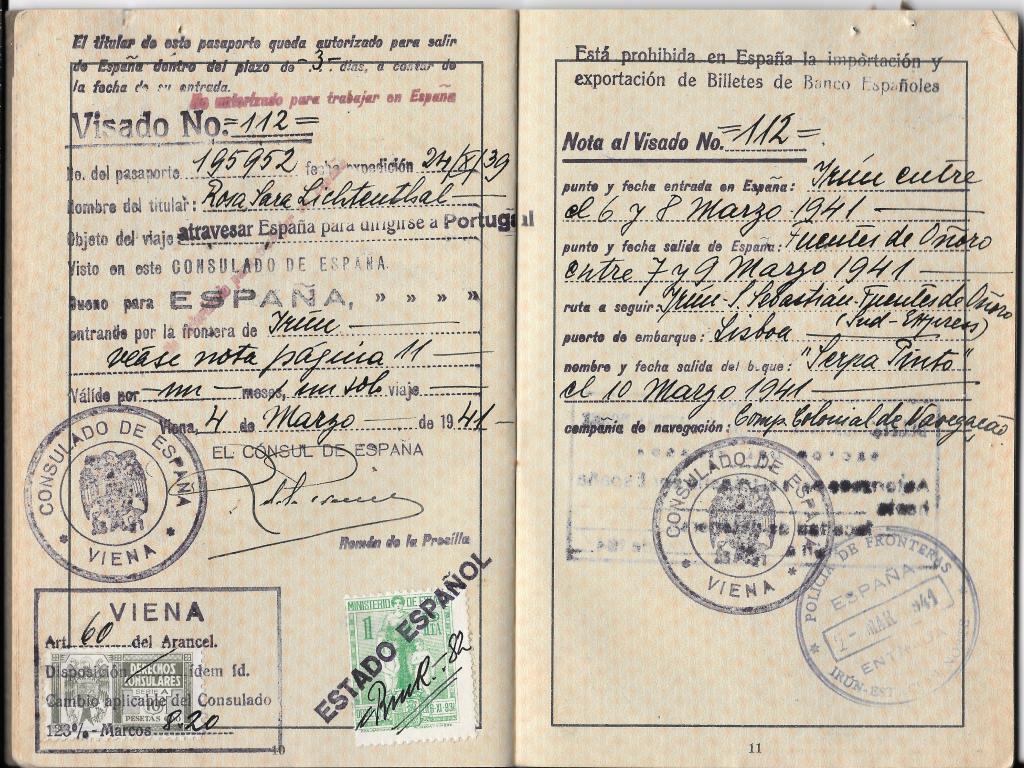 El titular de este pasaporte queda autorizado para salir
de España dentro del plazo de -3.- días, a contar de
la fecha de su entrada.
No autorizado para trabajar en España
Visado No. =112=
No. del pasaporte 195952 fecha expedición 24/8/39
Nombre del titular: Rosa Sara Lichtenthal
Objeto del viaje atravesar España para dirigirse a Portugal
Visto en este CONSULADO DE ESPAÑA.
Bueno para ESPAÑA, " " " "
entrando por la frontera de Irún
véase nota página 11
Válido por un meses, un solo viaje
Viena, 4 de Marzo de 1941
EL CÓNSUL DE ESPAÑA
CONSULADO DE ESPAÑA
* VIENA *
Román de la Presilla
VIENA
Art. 60 del Arancel.
Disposición idem id.
Cambio aplicable del Consulado
123%.- Marcos 8.20
DERECHOS
CONSULARES
SERIE A
PESETAS
MINISTERIO DE
1
ESTADO ESPAÑOL
10
Está prohibida en España la importación y
exportación de Billetes de Banco Españoles
Nota al Visado No. =112=
punto y fecha entrada en España: Irún entre
el 6 y 8 Marzo 1941
punto y fecha salida de España: Fuentes de Oñoro
entre 7 y 9 Marzo 1941
ruta a seguir: Irún-S. Sebastián-Fuentes de Oñoro
(Sud-Express)
puerto de embarque: Lisboa
nombre y fecha salida del buque: "Serpa Pinto"
el 10 Marzo 1941
compañía de navegación: Comp. Colonial de Navegação
CONSULADO DE ESPAÑA
* VIENA *
POLICIA DE FRONTERAS
ESPAÑA
7- MAR 1941
ENTRADA
11